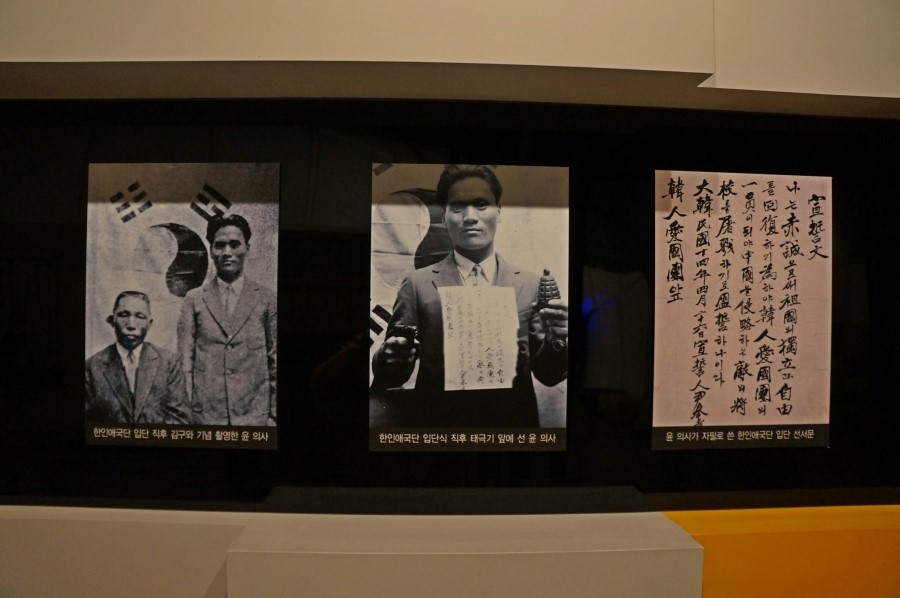 한인애국단 입단 직후 김구와 기념 촬영한 윤 의사
한인애국단 입단식 직후 태극기 앞에 선 윤 의사
宣誓文
나는 赤誠으로써 祖國의 獨立과 自由
를 回復하기 爲하야 韓人愛國團의
一員이 되야 中國을 侵略하는 敵의 將
校를 屠戮하기로 盟誓하나이다
大韓民國十四年四月二六日 宣誓人 尹奉吉
韓人愛國團앞
윤 의사가 자필로 쓴 한인애국단 입단 선서문